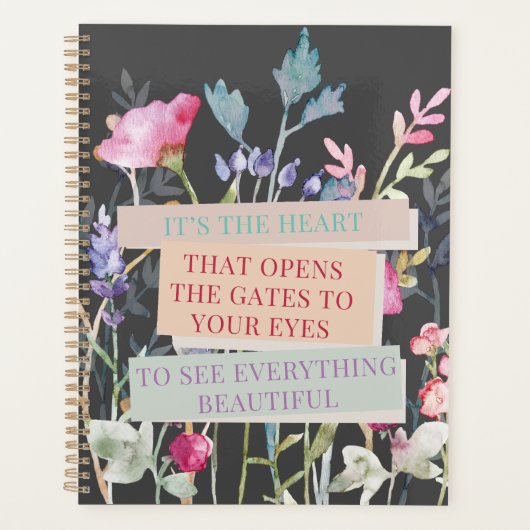 IT'S THE HEART
THAT OPENS
THE GATES TO
YOUR EYES
TO SEE EVERYTHING
BEAUTIFUL